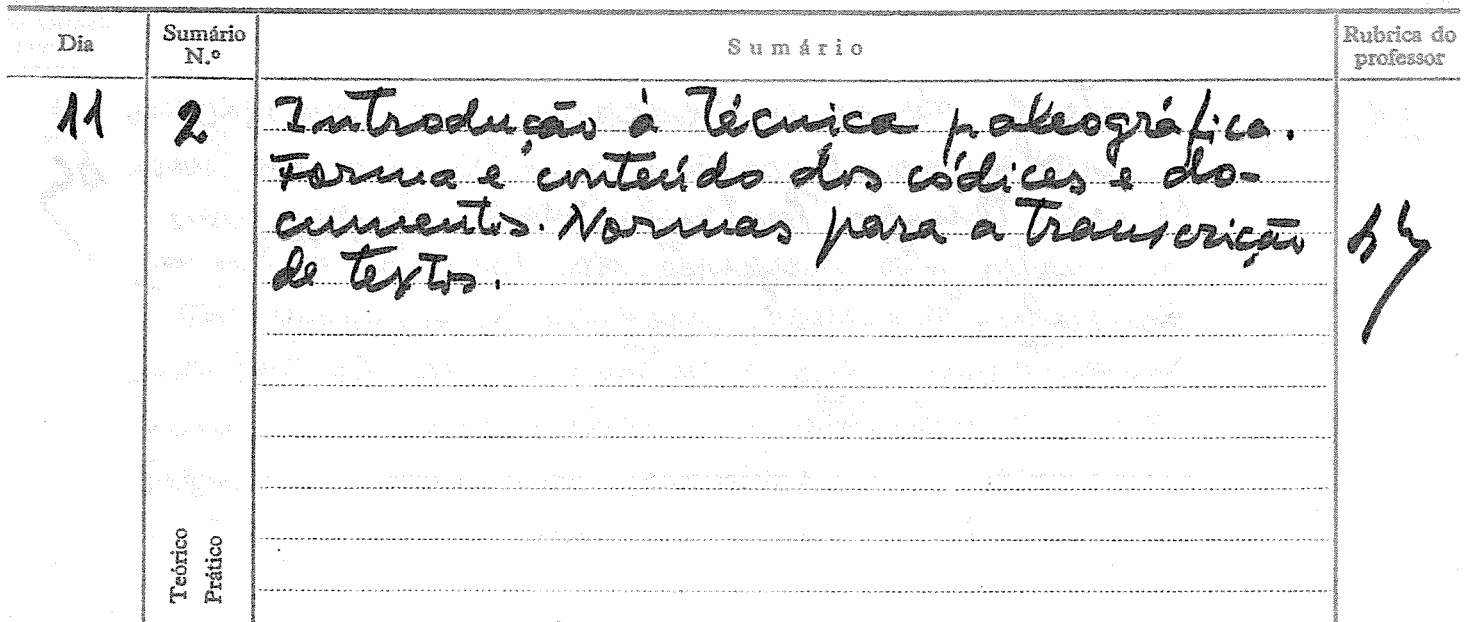 Dia Sumário N.º Sumário Rubrica do professor
11 2 Introdução à técnica paleográfica.
Forma e conteúdo dos códices e do-
cumentos. Normas para a transcrição
de textos.
Teórico
Prático